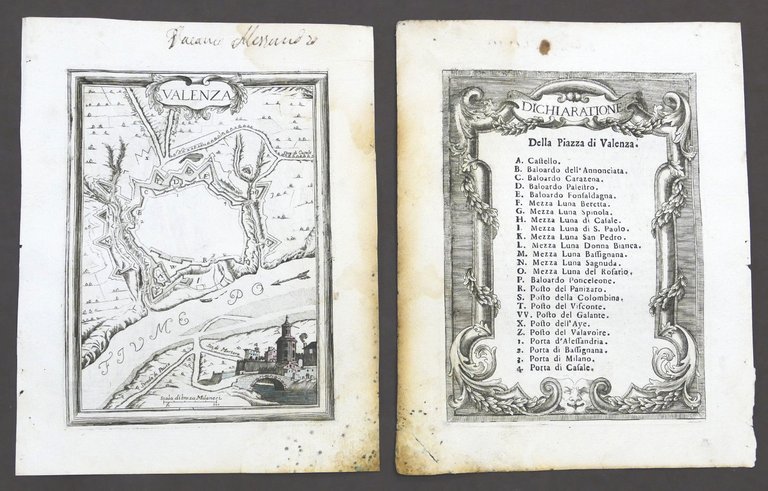 VALENZA
FIVME PO
Scala di braza Milanesi
DICHIARATIONE
Della Piazza di Valenza.
A. Castello.
B. Baloardo dell'Annonciata.
C. Baloardo Carazena.
D. Baloardo Palestro.
E. Baloardo Fonsaldagna.
F. Mezza Luna Beretta.
G. Mezza Luna Spinola.
H. Mezza Luna di Casale.
I. Mezza Luna di S. Paolo.
K. Mezza Luna San Pedro.
L. Mezza Luna Donna Bianca.
M. Mezza Luna Bassignana.
N. Mezza Luna Sagnuda.
O. Mezza Luna del Rosario.
P. Baloardo Ponceleone.
R. Posto del Panizaro.
S. Posto della Colombina.
T. Posto del Visconte.
VV. Posto del Galante.
X. Posto dell'Aye.
Z. Posto del Valavoire.
1. Porta d'Alessandria.
2. Porta di Bassignana.
3. Porta di Milano.
4. Porta di Casale.